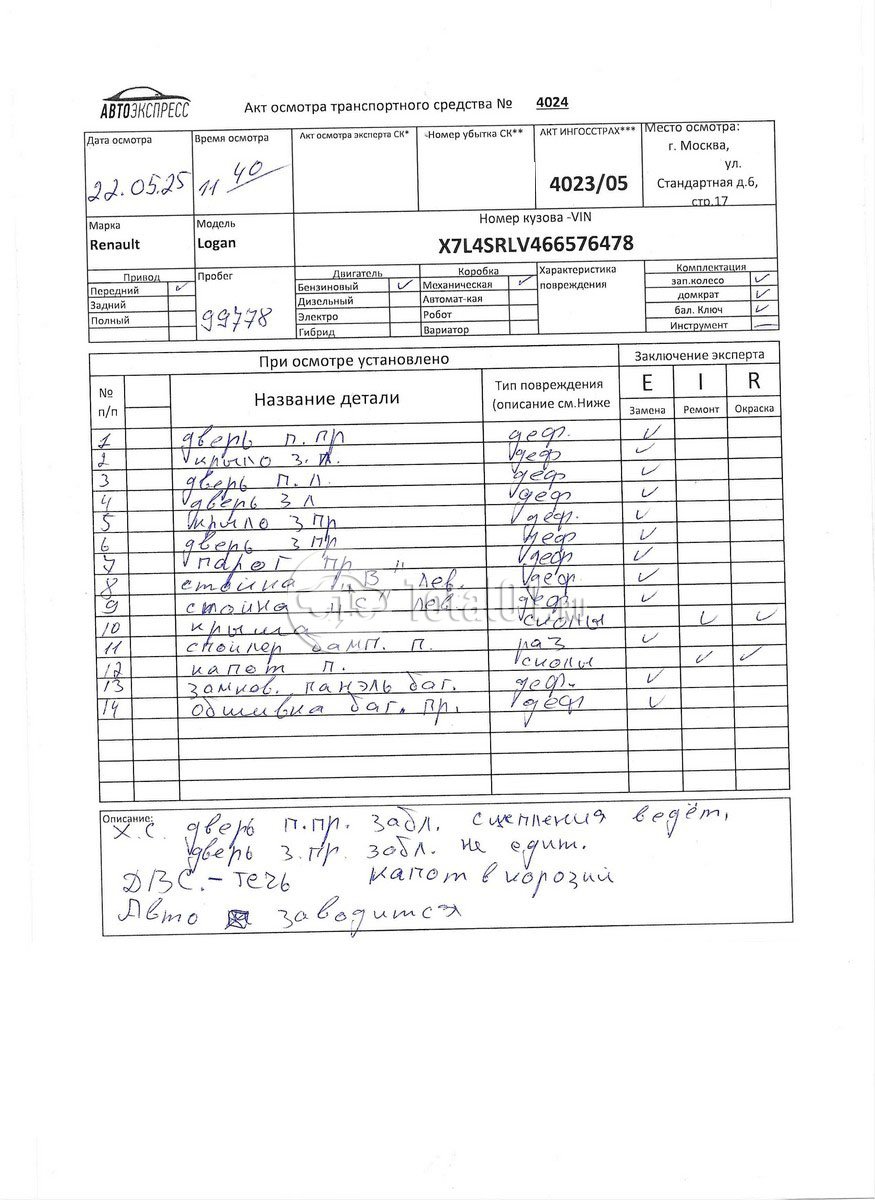 АВТОЭКСПРЕСС
Акт осмотра транспортного средства № 4024
Дата осмотра
22.05.25
Время осмотра
11 40
Акт осмотра эксперта СК*
Номер убытка СК**
АКТ ИНГОССТРАХ***
4023/05
Место осмотра:
г. Москва,
ул.
Стандартная д.6,
стр.17
Марка
Renault
Модель
Logan
Номер кузова -VIN
X7L4SRLV466576478
Привод
Передний ✓
Задний
Полный
Пробег
99778
Двигатель
Бензиновый ✓
Дизельный
Электро
Гибрид
Коробка
Механическая ✓
Автомат-кая
Робот
Вариатор
Характеристика
повреждения
Комплектация
зап.колесо ✓
домкрат ✓
бал. Ключ ✓
Инструмент —
При осмотре установлено
Заключение эксперта
№
п/п
Название детали
Тип повреждения
(описание см.Ниже
E I R
Замена Ремонт Окраска
1 дверь п. пр деф. ✓
2 крыло з. л. деф ✓
3 дверь п. л. деф ✓
4 дверь з л деф ✓
5 крыло з пр деф. ✓
6 дверь з пр деф ✓
7 парог пр деф ✓
8 стойка "В" лев. деф ✓
9 стойка лев деф ✓
10 крыша сколы ✓ ✓
11 спойлер бамп. п. раз ✓
12 капот п. сколы ✓ ✓
13 замков. панэль баг. деф. ✓
14 обшивка баг. пр. деф ✓
Описание:
Х.С. дверь п.пр. забл. сцепления ведёт,
дверь з.пр. забл. не едит.
ДВС.-течь капот в корозии
Авто заводится
TotalO .ru